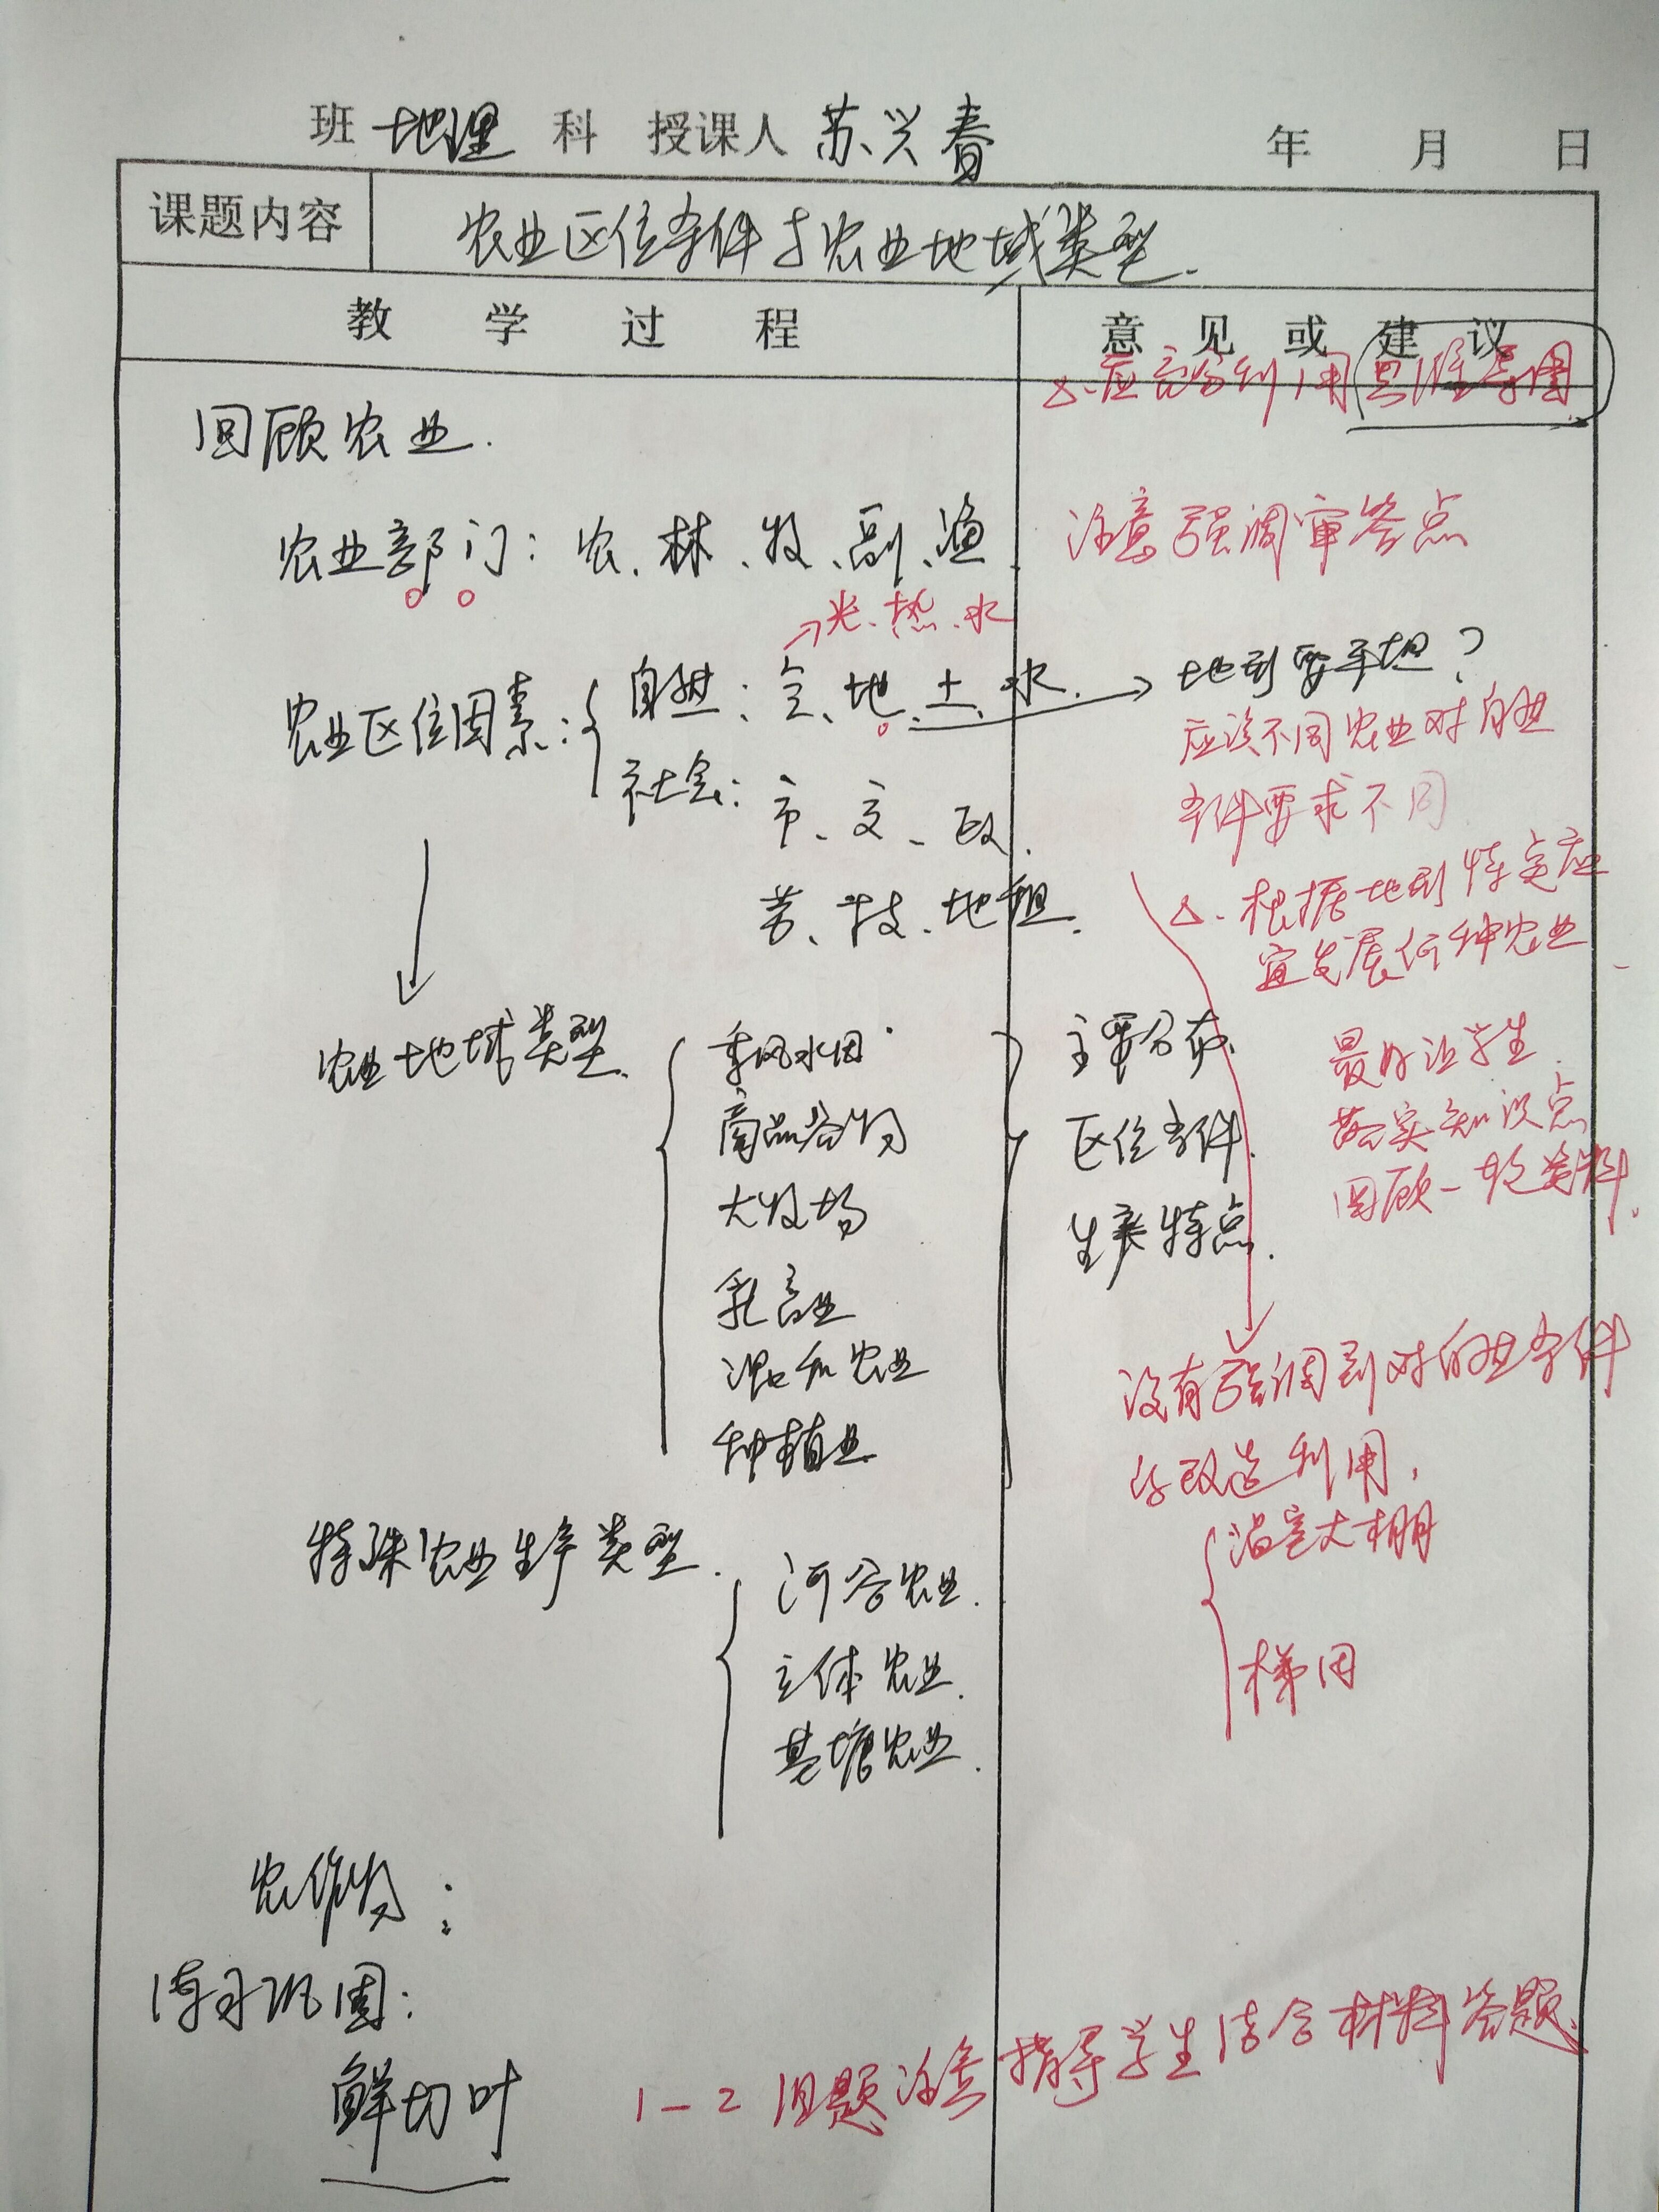 班 地理 科 授课人 苏兴春 年 月 日
课题内容 农业区位条件与农业地域类型.
教 学 过 程 意 见 或 建 议
△.应充分利用思维导图
回顾农业.
农业部门：农、林、牧、副、渔 注意强调审答点
→光、热、水
农业区位因素： 自然：气、地、土、水. → 地形要平坦？
应该不同农业对自然
条件要求不同
社会：市、交、政.
劳、技、地租.
△.根据地形特定应
宜发展何种农业
农业地域类型. 季风水田 主要分布.
商品谷物 区位条件.
大牧场 生产特点.
乳畜业
混和农业
种植业
最好让学生
落实知识点
回顾一轮资料.
没有强调到对自然条件
的改造利用，
温室大棚
梯田
特殊农业生产类型. 河谷农业.
立体农业.
基塘农业.
农作物：
练习巩固：
鲜切叶 1-2 问题注意指导学生结合材料答题.